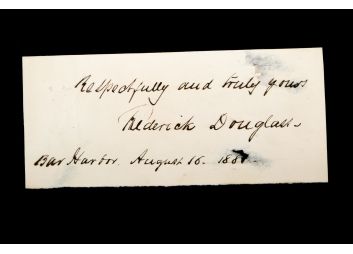 Respectfully and truly yours
Frederick Douglass
Bar Harbor. August 16.